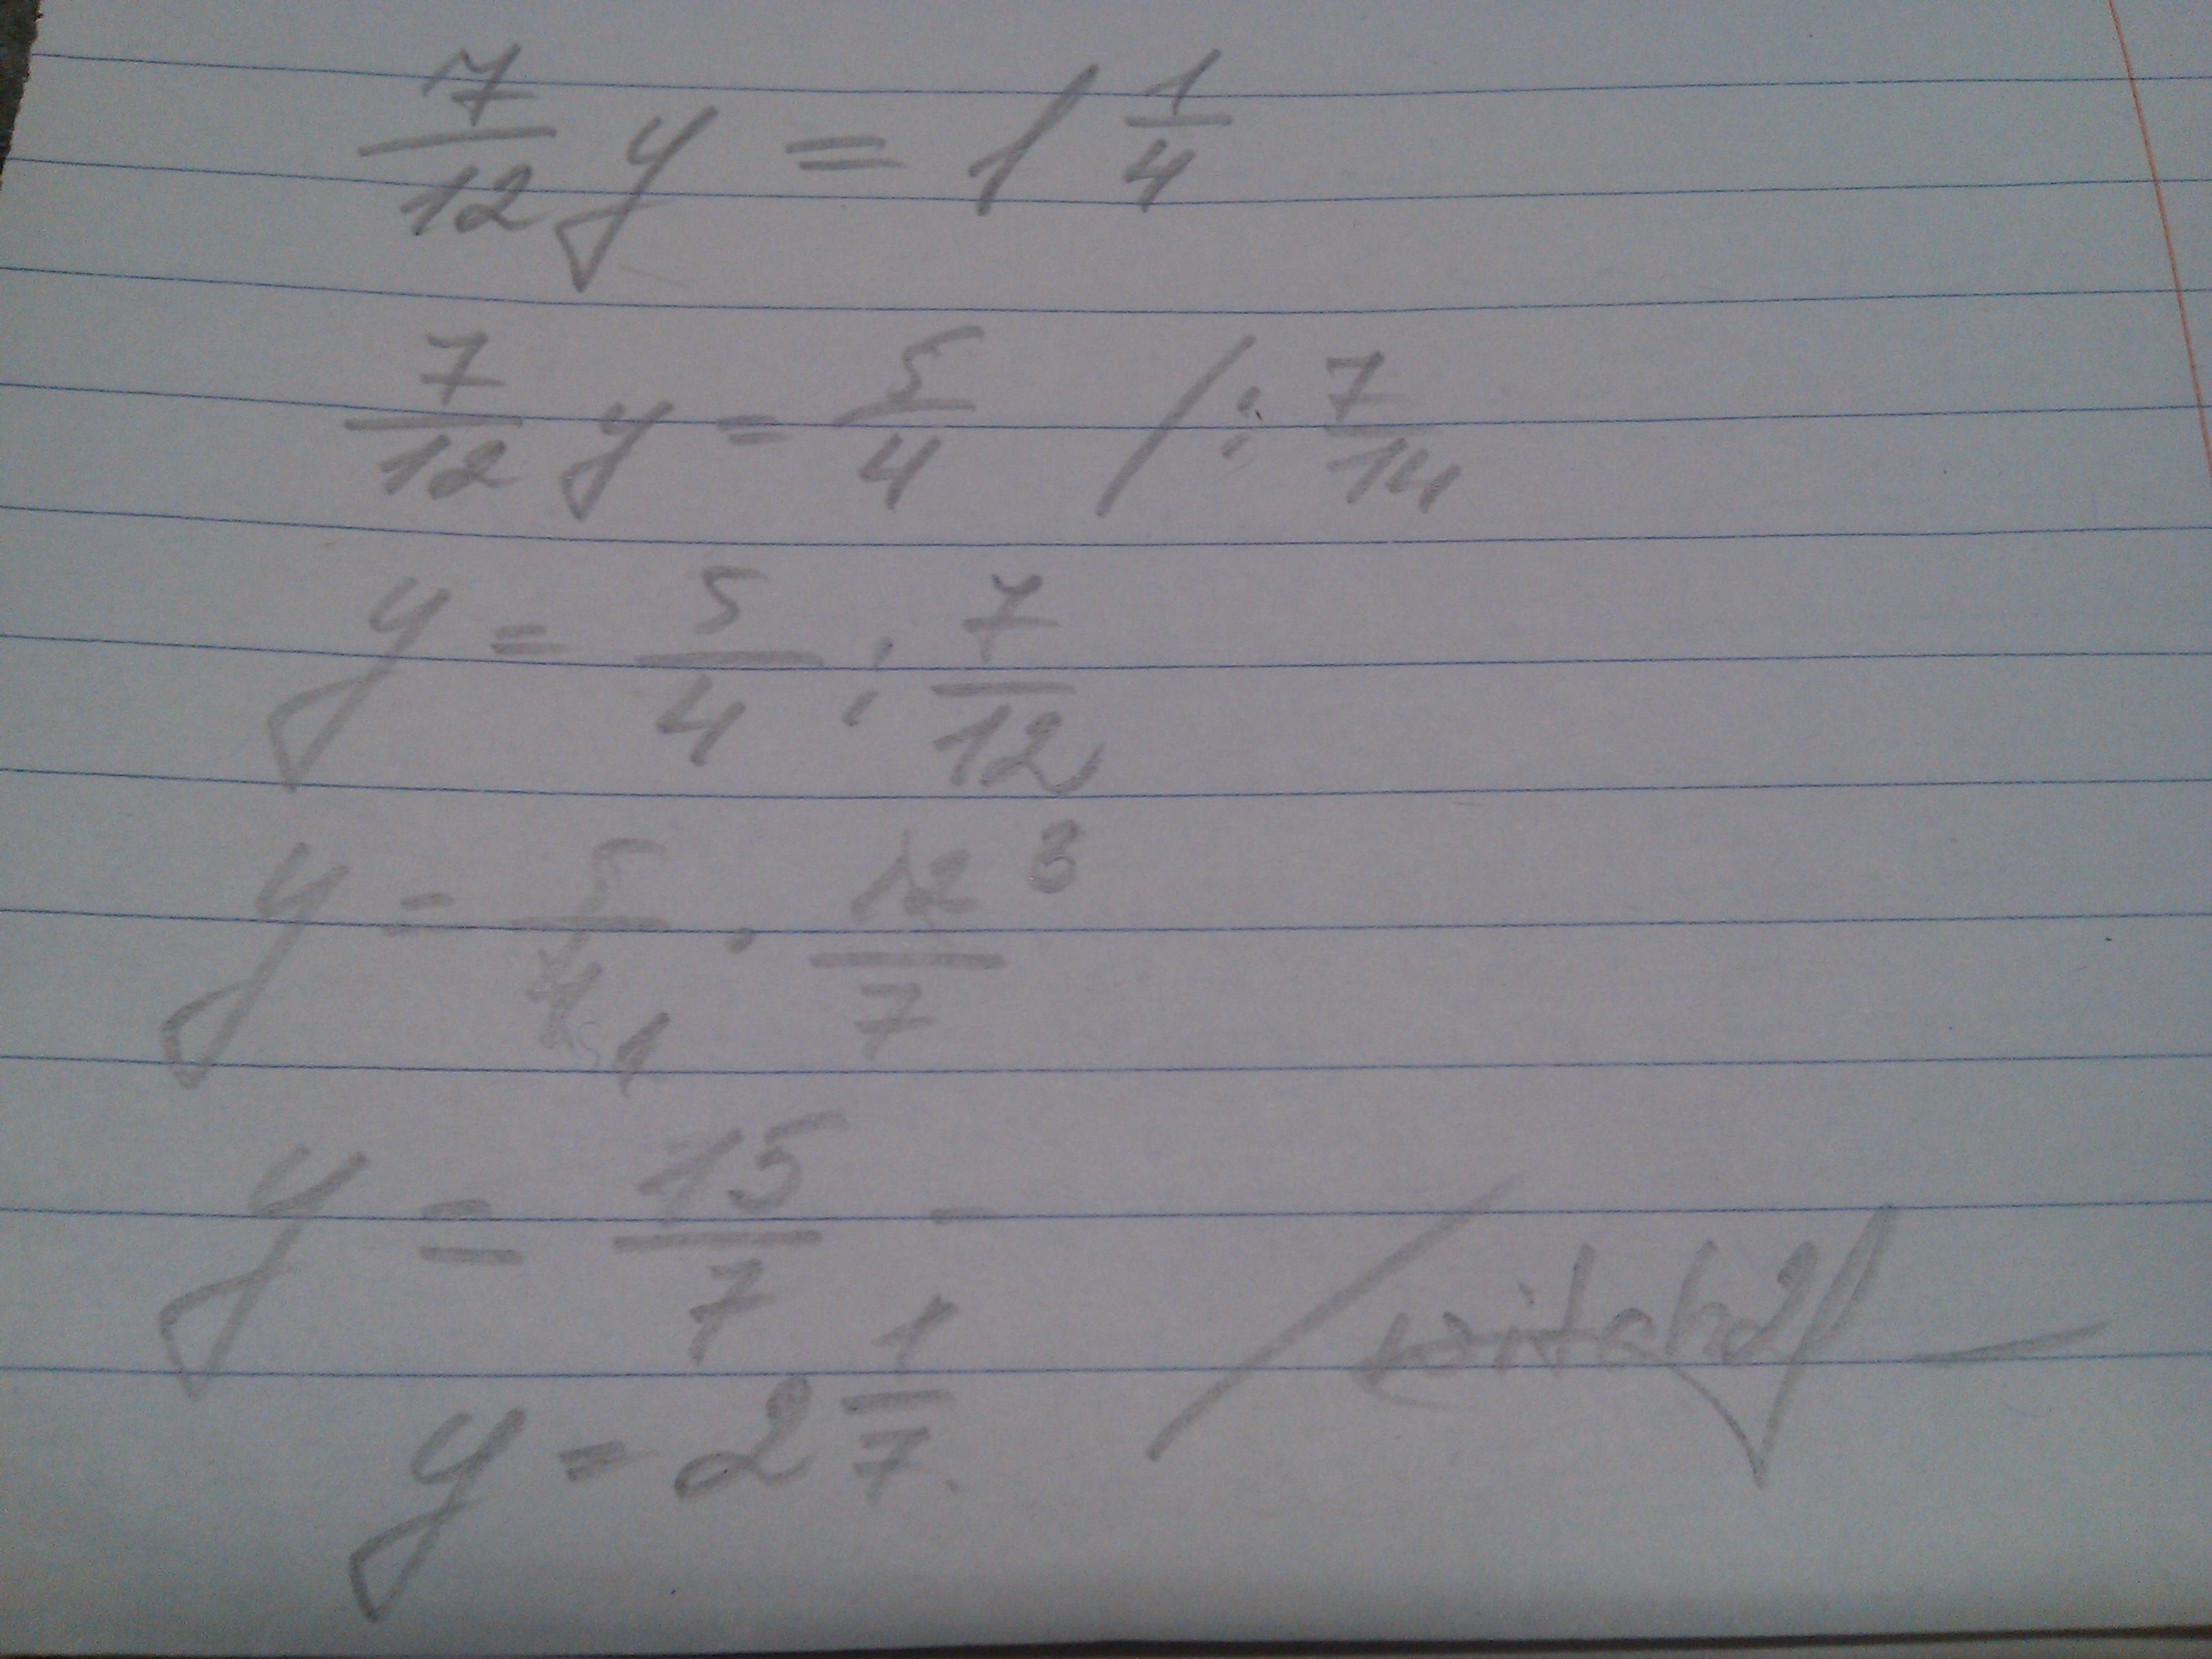 7/12 y = 1 1/4
7/12 y = 5/4 / : 7/14
y = 5/4 : 7/12
y = 5/4 1 · 12/7 3
y = 15/7 -
y = 2 1/7.